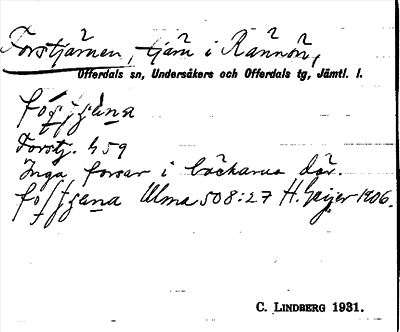 Forstjärnen, tjärn i Rännön,
Offerdals sn, Undersåkers och Offerdals tg, Jämtl. l.
Forstj. h 59
Inga forsar i bäckarna där.
Ulma 508:27 H. Geijer 1906.
C. Lindberg 1931.